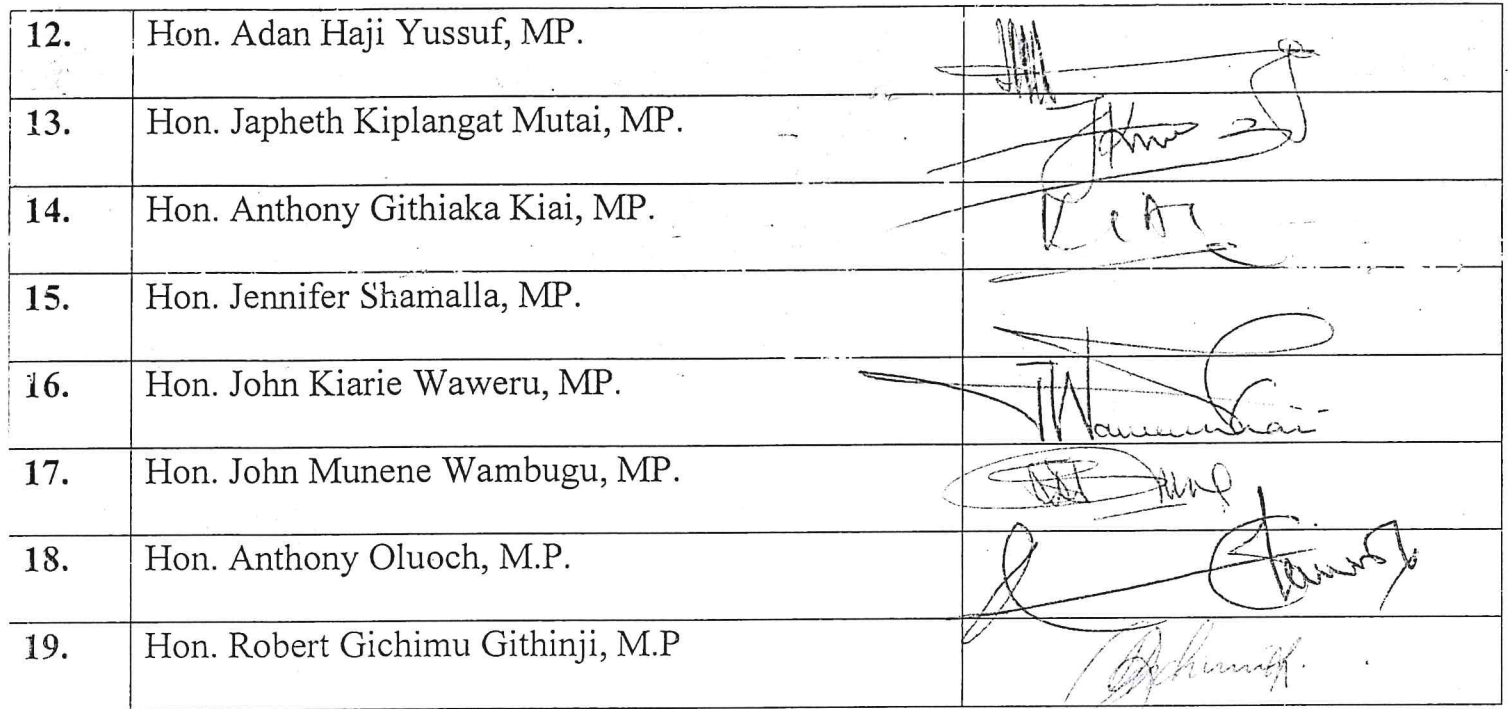 12. Hon. Adan Haji Yussuf, MP.
13. Hon. Japheth Kiplangat Mutai, MP.
14. Hon. Anthony Githiaka Kiai, MP. KIAI
15. Hon. Jennifer Shamalla, MP.
16. Hon. John Kiarie Waweru, MP.
17. Hon. John Munene Wambugu, MP.
18. Hon. Anthony Oluoch, M.P.
19. Hon. Robert Gichimu Githinji, M.P